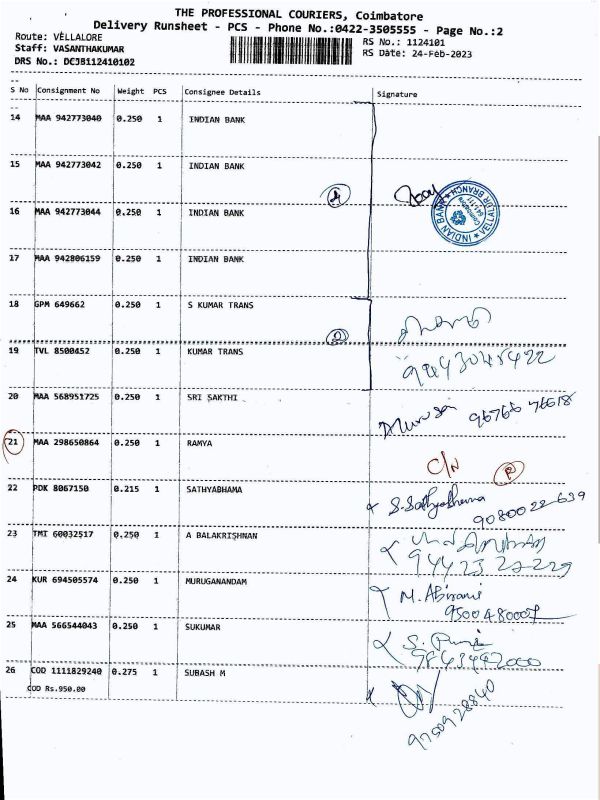 THE PROFESSIONAL COURIERS, Coimbatore
Delivery Runsheet - PCS - Phone No.:0422-3505555 - Page No.:2
Route: VELLALORE
RS No.: 1124101
Staff: VASANTHAKUMAR
RS Date: 24-Feb-2023
DRS No.: DCJB112410102
S No Consignment No Weight PCS Consignee Details Signature
14 MAA 942773040 0.250 1 INDIAN BANK
15 MAA 942773042 0.250 1 INDIAN BANK
INDIAN BANK * VELLALUR BRANCH * Coimbatore
16 MAA 942773044 0.250 1 INDIAN BANK
17 MAA 942806159 0.250 1 INDIAN BANK
18 GPM 649662 0.250 1 S KUMAR TRANS
19 TVL 8500452 0.250 1 KUMAR TRANS
20 MAA 568951725 0.250 1 SRI SAKTHI
Murugan 96766 76618
21 MAA 298650864 0.250 1 RAMYA
C/N R
22 PDK 8067150 0.215 1 SATHYABHAMA
S. Sathyabhama
9080022639
23 TMI 60032517 0.250 1 A BALAKRISHNAN
9442322229
24 KUR 694505574 0.250 1 MURUGANANDAM
M. Abirami
25 MAA 566544043 0.250 1 SUKUMAR
9843442000
26 COD 1111829240 0.275 1 SUBASH M
COD Rs.950.00
9750928840